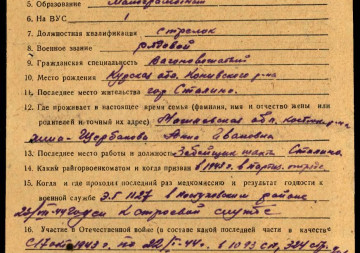 5. Образование Малограмотный
6. На ВУС 1
7. Должностная квалификация стрелок
8. Военное звание рядовой
9. Гражданская специальность
10. Место рождения Курская обл. р-на
11. Последнее место жительства гор Сталино.
12. Где проживает в настоящее время семья (фамилия, имя и отчество жены или
родителей и точный их адрес) обл.
Щербакова Анна Ивановна
13. Последнее место работы и должность Забойщик шахт Сталино.
14. Каким райгорвоенкоматом и когда призван в 1943 г. в
15. Когда и где проходил последний раз медкомиссию и результат годности к
военной службе Э.Г. 1127 в районе
44 года к строевой службе
16. Участие в Отечественной войне (в составе какой последней части и в качестве
1943 г. по 44 г. в 1093 сп, 324 стр.